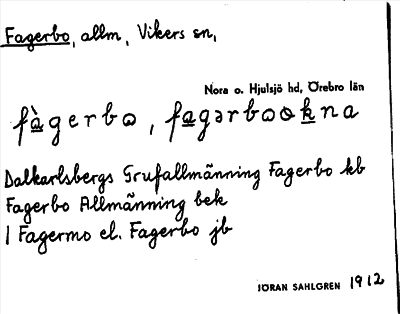 Fagerbo, allm, Vikers sn,
Nora o. Hjulsjö hd, Örebro län
fàgerbo, fagərbookna
Dalkarlsbergs Grufallmänning Fagerbo kb
Fagerbo Allmänning bek
1 Fagermo el. Fagerbo jb
JÖRAN SAHLGREN 1912